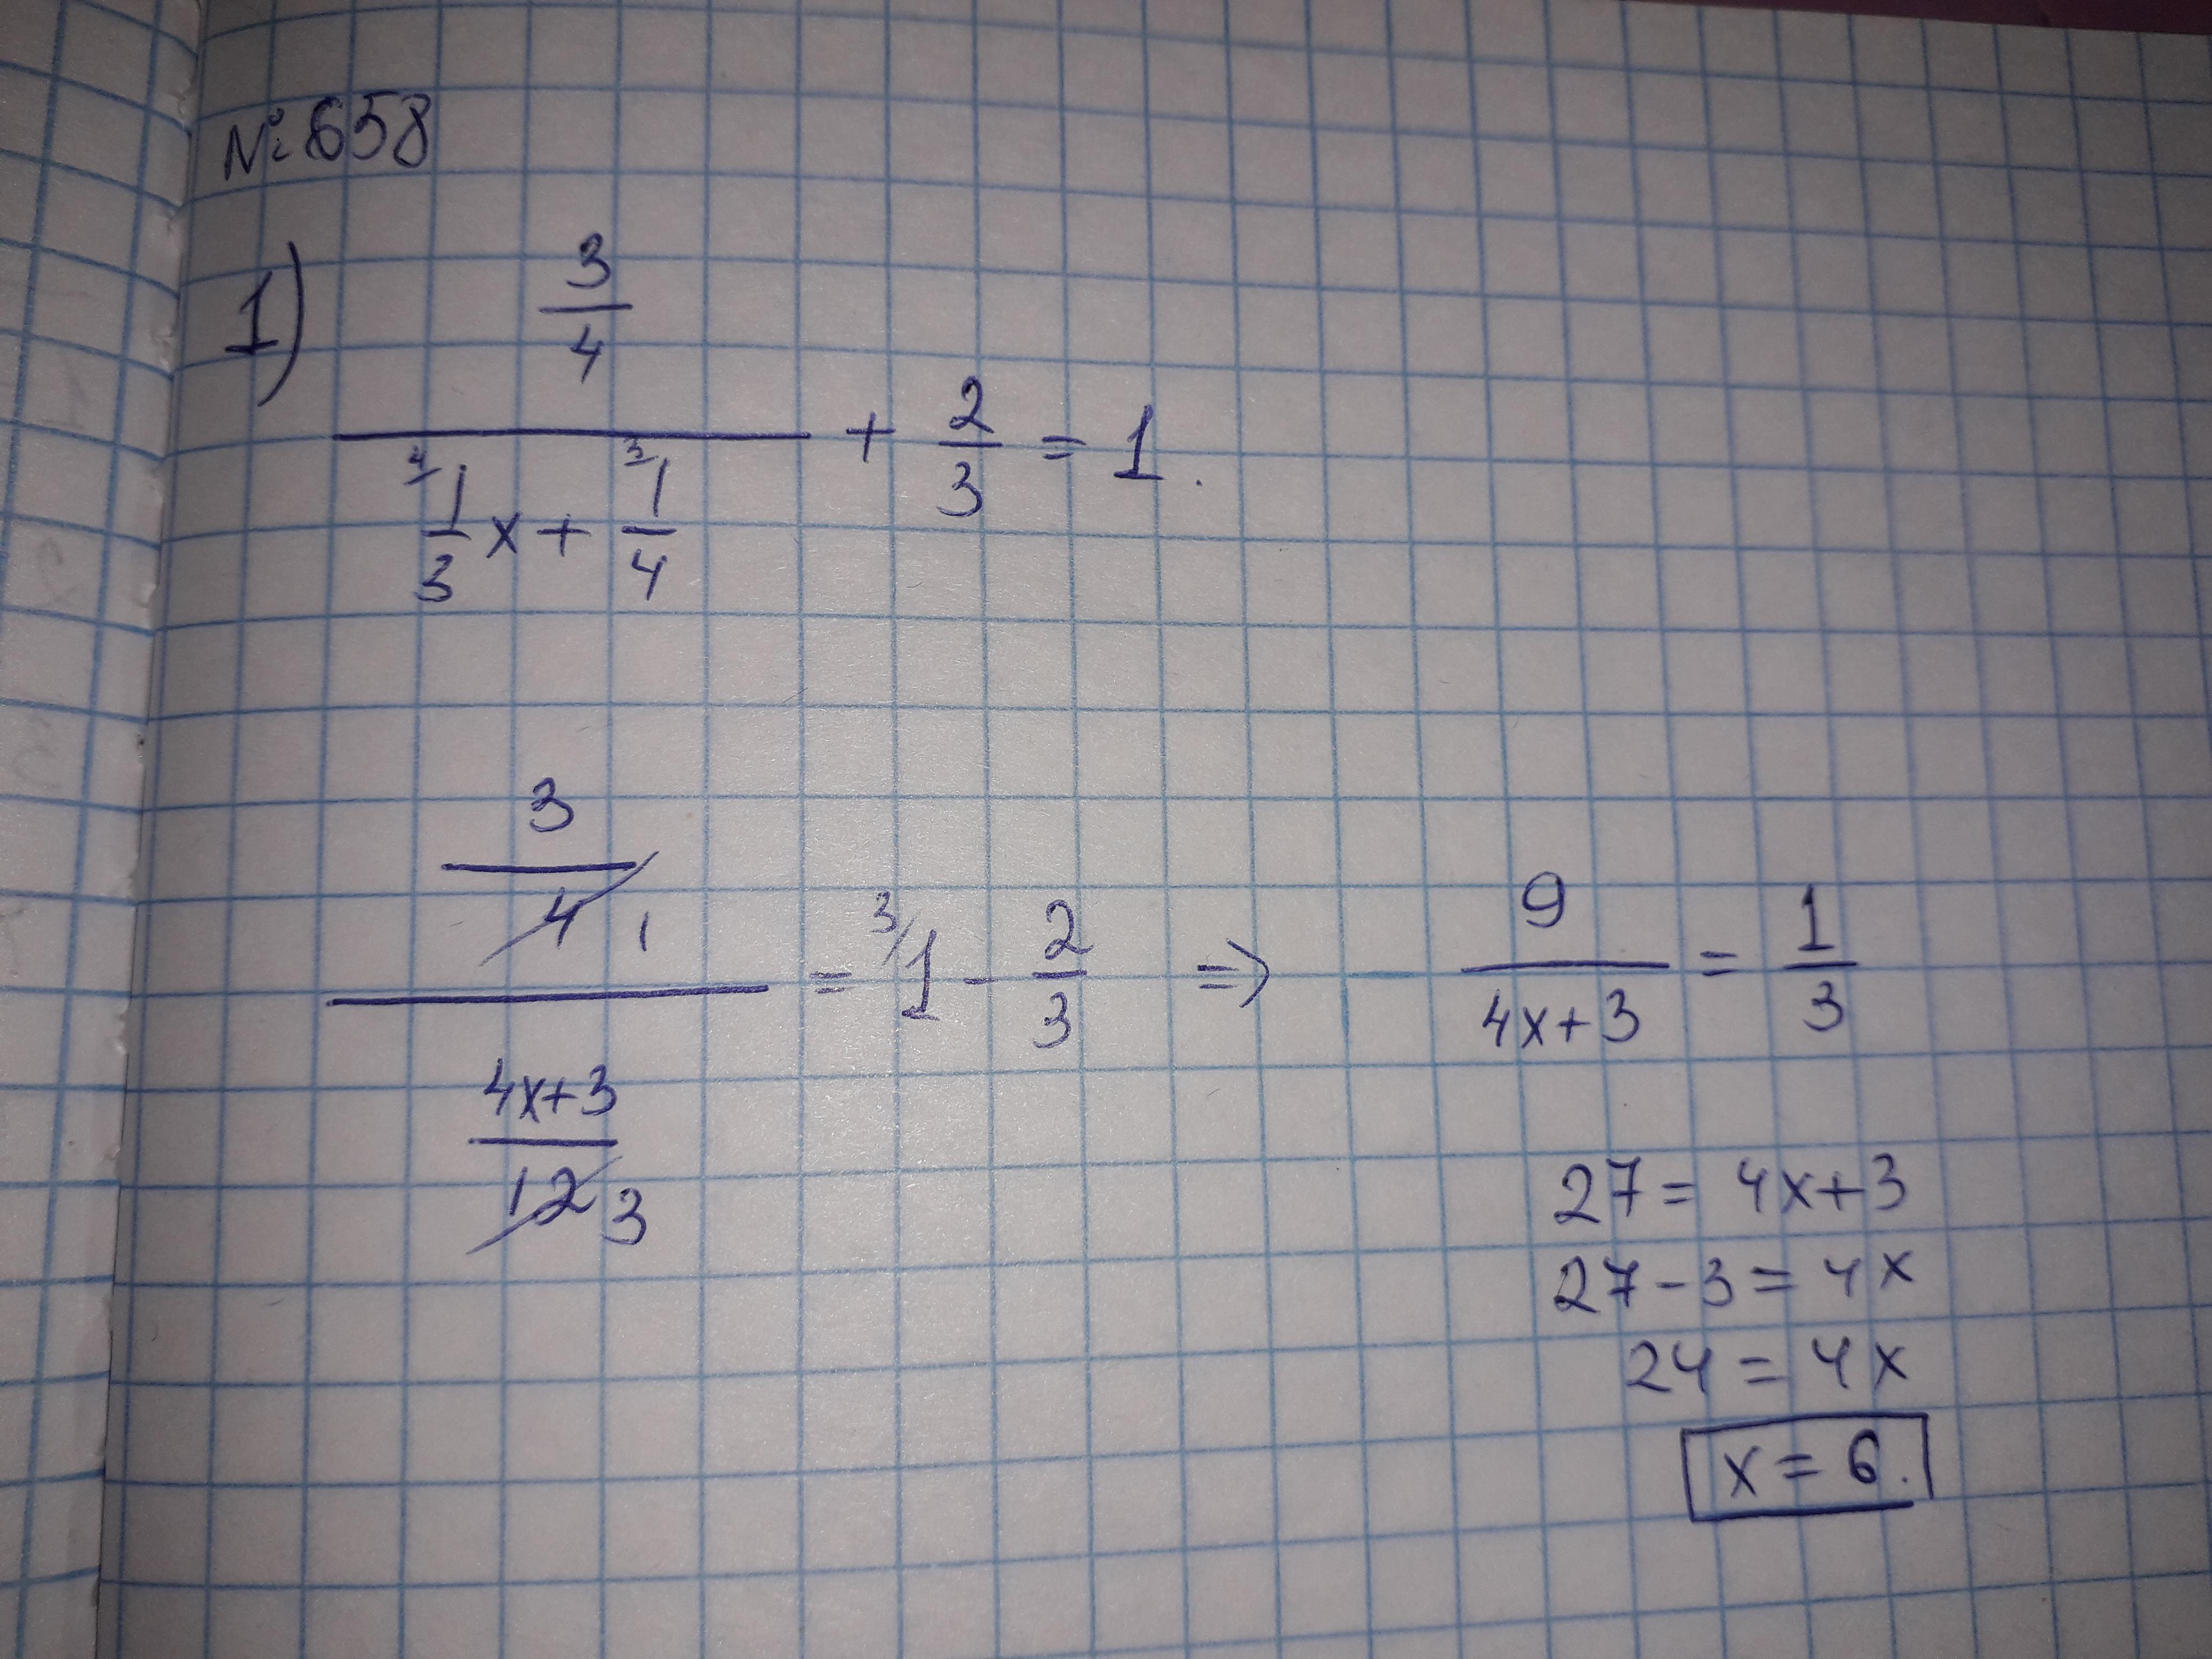 № 658
1) (3/4)/(⁴⁄1/3 x + ³⁄1/4) + 2/3 = 1.
(3/4 1)/((4x+3)/12 3) = ³⁄1 - 2/3 => 9/(4x+3) = 1/3
27 = 4x+3
27-3 = 4x
24 = 4x
x = 6.